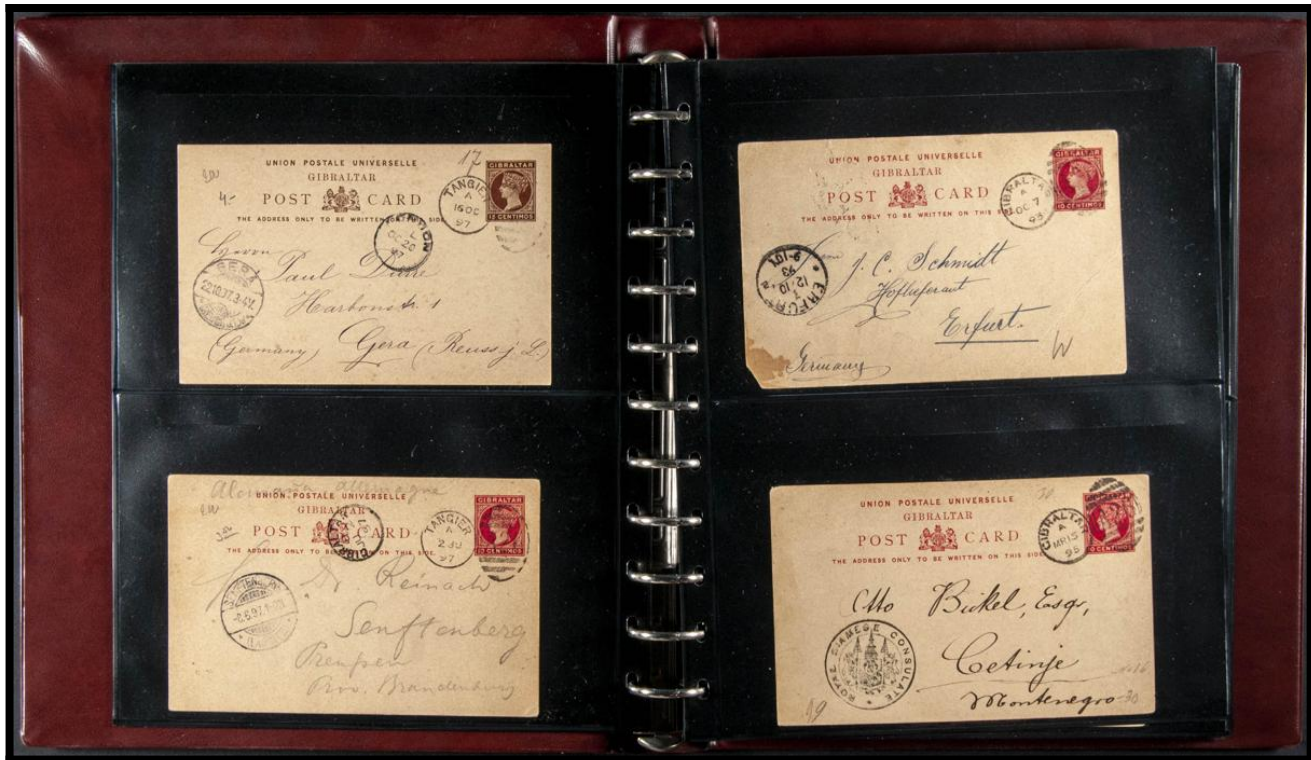 17
UNION POSTALE UNIVERSELLE
GIBRALTAR
POST CARD
THE ADDRESS ONLY TO BE WRITTEN SIDE
GIBRALTAR
10 CENTIMOS
4-
TANGIER
A
16 OC
97
LONDON
L
OC 20
97
GERA
22.10.97.3-4
Herrn
Paul
Harbonstr 1
(Germany) Gera (Reuss j. L.)
Alemaña Allemagne
UNION POSTALE UNIVERSELLE
GIBRALTAR
POST CARD
THE ADDRESS ONLY TO BE WRITTEN ON THIS SIDE.
GIBRALTAR
10 CENTIMOS
TANGIER
A
2 JU
97
GIBRALTAR
SENFTENBERG
Reinach
Senftenberg
Preußen
Prov. Brandenburg
UNION POSTALE UNIVERSELLE
GIBRALTAR
POST CARD
THE ADDRESS ONLY TO BE WRITTEN ON THIS
GIBRALTAR
10 CENTIMOS
GIBRALTAR
A
OC 7
93
ERFURT
12/10
93
J. C. Schmidt
Hoflieferant
Erfurt.
Germany
30
UNION POSTALE UNIVERSELLE
GIBRALTAR
POST CARD
THE ADDRESS ONLY TO BE WRITTEN ON THIS SIDE
GIBRALTAR
10 CENTIMOS
GIBRALTAR
A
MR 15
95
Otto Bickel, Esqr,
Cetinje
Montenegro
ROYAL SIAMESE CONSULATE
19